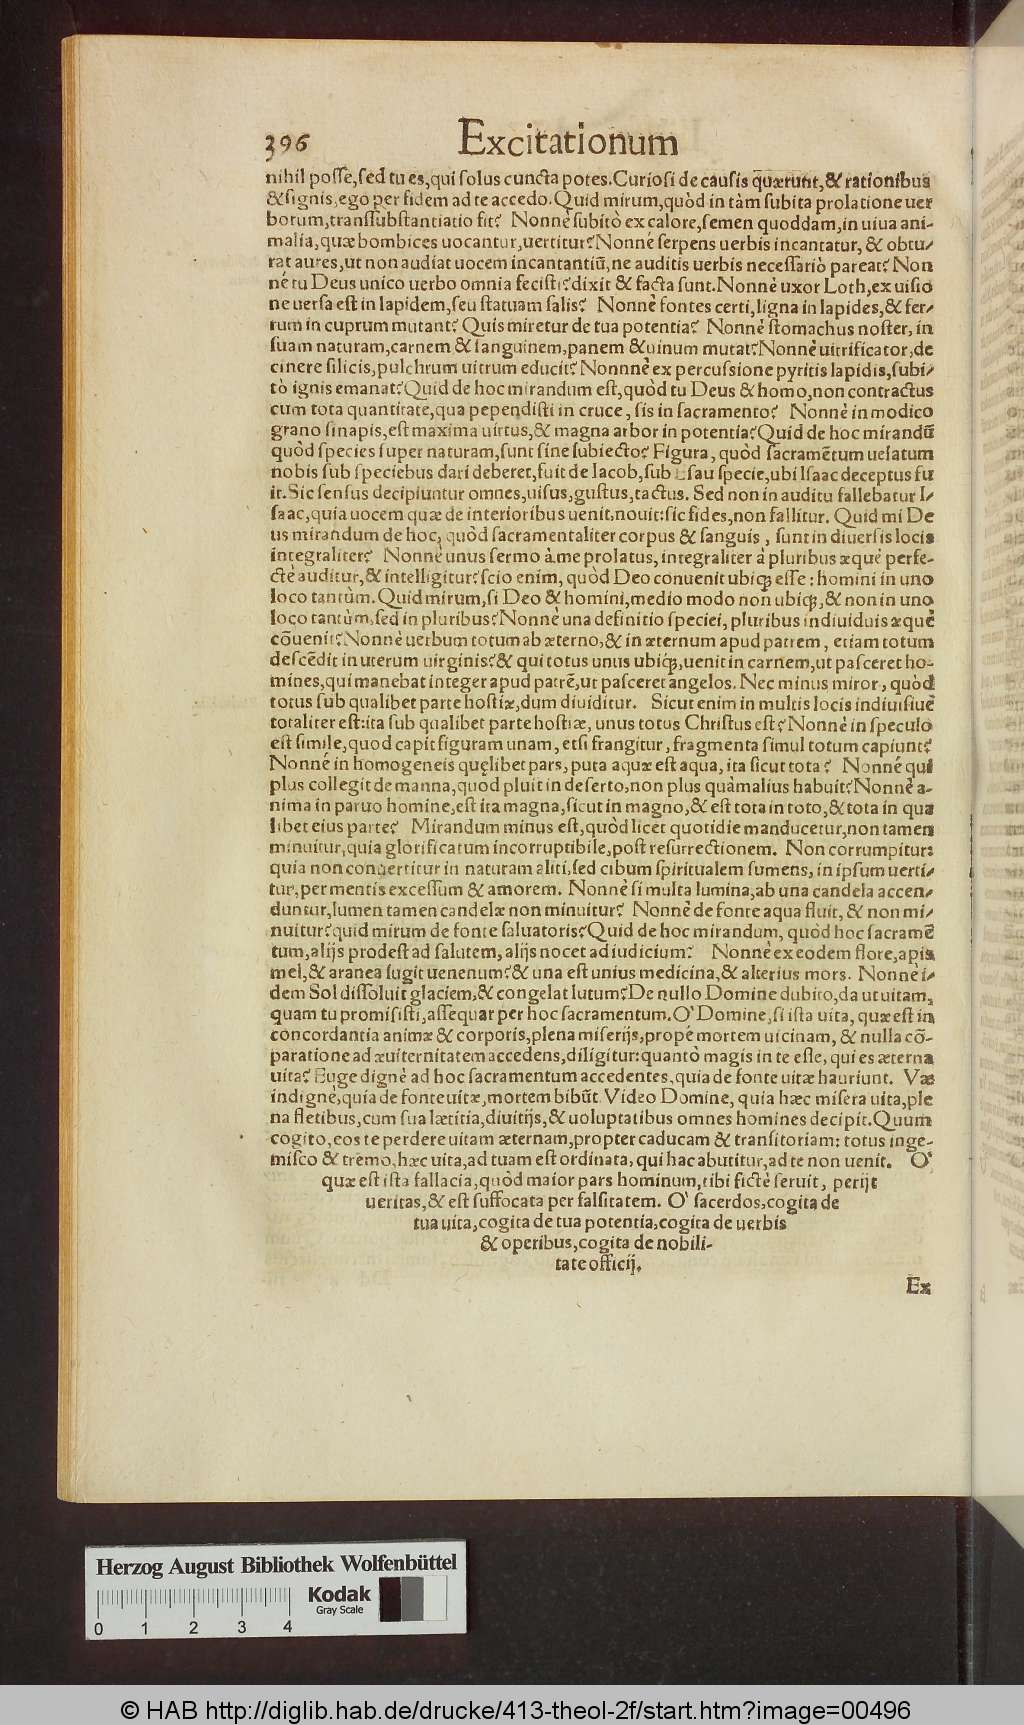 396 Excitationum
nihil posse, sed tu es, qui solus cuncta potes. Curiosi de causis quærunt, & rationibus
& signis, ego per fidem ad te accedo. Quid mirum, quòd in tàm subita prolatione uer
borum, transsubstantiatio fit? Nonnè subitò ex calore, semen quoddam, in uiua ani-
malia, quæ bombices uocantur, uertitur? Nonné serpens uerbis incantatur, & obtu-
rat aures, ut non audiat uocem incantantiũ, ne auditis uerbis necessariò pareat? Non
né tu Deus unico uerbo omnia fecisti? dixit & facta sunt. Nonnè uxor Loth, ex uisio
ne uersa est in lapidem, seu statuam salis? Nonnè fontes certi, ligna in lapides, & fer-
rum in cuprum mutant? Quis miretur de tua potentia? Nonnè stomachus noster, in
suam naturam, carnem & sanguinem, panem & uinum mutat? Nonnè uitrificator, de
cinere silicis, pulchrum uitrum educit? Nonnnè ex percussione pyritis lapidis, subi-
tò ignis emanat? Quid de hoc mirandum est, quòd tu Deus & homo, non contractus
cum tota quantitate, qua pependisti in cruce, sis in sacramento? Nonnè in modico
grano sinapis, est maxima uirtus, & magna arbor in potentia? Quid de hoc mirandũ
quòd species super naturam, sunt sine subiecto? Figura, quòd sacramẽtum uelatum
nobis sub speciebus dari deberet, fuit de Iacob, sub Esau specie, ubi Isaac deceptus fu
it. Sic sensus decipiuntur omnes, uisus, gustus, tactus. Sed non in auditu fallebatur I-
saac, quia uocem quæ de interioribus uenit, nouit: sic fides, non fallitur. Quid mi De
us mirandum de hoc, quòd sacramentaliter corpus & sanguis, sunt in diuersis locis
integraliter? Nonnè unus sermo à me prolatus, integraliter à pluribus æquè perfe-
ctè auditur, & intelligitur? scio enim, quòd Deo conuenit ubiq; esse: homini in uno
loco tantùm. Quid mirum, si Deo & homini, medio modo non ubiq;, & non in uno
loco tantùm, sed in pluribus? Nonnè una definitio speciei, pluribus indiuiduis æquè
cõuenit? Nonnè uerbum totum ab æterno, & in æternum apud patrem, etiam totum
descẽdit in uterum uirginis? & qui totus unus ubiq;, uenit in carnem, ut pasceret ho-
mines, qui manebat integer apud patrẽ, ut pasceret angelos. Nec minus miror, quòd
totus sub qualibet parte hostiæ, dum diuiditur. Sicut enim in multis locis indiuisiuè
totaliter est: ita sub qualibet parte hostiæ, unus totus Christus est? Nonnè in speculo
est simile, quod capit figuram unam, etsi frangitur, fragmenta simul totum capiunt?
Nonné in homogeneis quęlibet pars, puta aquæ est aqua, ita sicut tota? Nonné qui
plus collegit de manna, quod pluit in deserto, non plus quàm alius habuit? Nonnè a-
nima in paruo homine, est ita magna, sicut in magno, & est tota in toto, & tota in qua
libet eius parte? Mirandum minus est, quòd licet quotidie manducetur, non tamen
minuitur, quia glorificatum incorruptibile, post resurrectionem. Non corrumpitur:
quia non conuertitur in naturam aliti, sed cibum spiritualem sumens, in ipsum uerti-
tur, per mentis excessum & amorem. Nonnè si multa lumina, ab una candela accen-
duntur, lumen tamen candelæ non minuitur? Nonnè de fonte aqua fluit, & non mi-
nuitur? quid mirum de fonte saluatoris? Quid de hoc mirandum, quòd hoc sacramẽ
tum, alijs prodest ad salutem, alijs nocet ad iudicium? Nonnè ex eodem flore, apis
mel, & aranea sugit uenenum? & una est unius medicina, & alterius mors. Nonnè i-
dem Sol dissoluit glaciem, & congelat lutum? De nullo Domine dubito, da ut uitam,
quam tu promisisti, assequar per hoc sacramentum. O' Domine, si ista uita, quæ est in
concordantia animæ & corporis, plena miserijs, propè mortem uicinam, & nulla cõ-
paratione ad æuiternitatem accedens, diligitur: quantò magis in te esse, qui es æterna
uita? Euge dignè ad hoc sacramentum accedentes, quia de fonte uitæ hauriunt. Væ
indignè, quia de fonte uitæ, mortem bibũt. Video Domine, quia hæc misera uita, ple
na fletibus, cum sua lætitia, diuitijs, & uoluptatibus omnes homines decipit. Quum
cogito, eos te perdere uitam æternam, propter caducam & transitoriam: totus inge-
misco & tremo, hæc uita, ad tuam est ordinata, qui hac abutitur, ad te non uenit. O'
quæ est ista fallacia, quòd maior pars hominum, tibi fictè seruit, perijt
ueritas, & est suffocata per falsitatem. O' sacerdos, cogita de
tua uita, cogita de tua potentia, cogita de uerbis
& operibus, cogita de nobili-
tate officij.
Ex
Herzog August Bibliothek Wolfenbüttel
Kodak
Gray Scale
0 1 2 3 4
© HAB http://diglib.hab.de/drucke/413-theol-2f/start.htm?image=00496